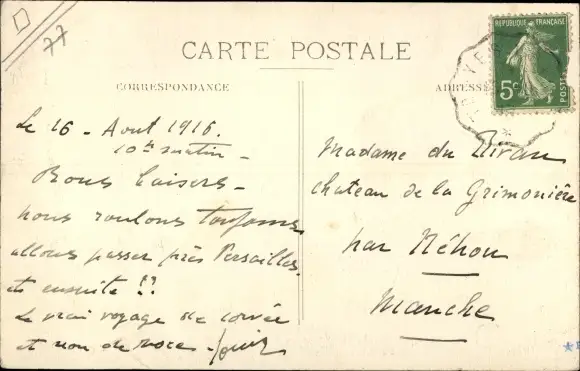 77
CARTE POSTALE
CORRESPONDANCE
Le 16 - Aout 1916.
10h matin -
Bons baisers -
nous roulons toujours
allons passer près Versailles.
et ensuite !!
Le vrai voyage de corvée
et non de noce -
ADRESSE
REPUBLIQUE FRANÇAISE
5c
POSTES
Madame du
chateau de la Grimonière
par Néhou
Manche